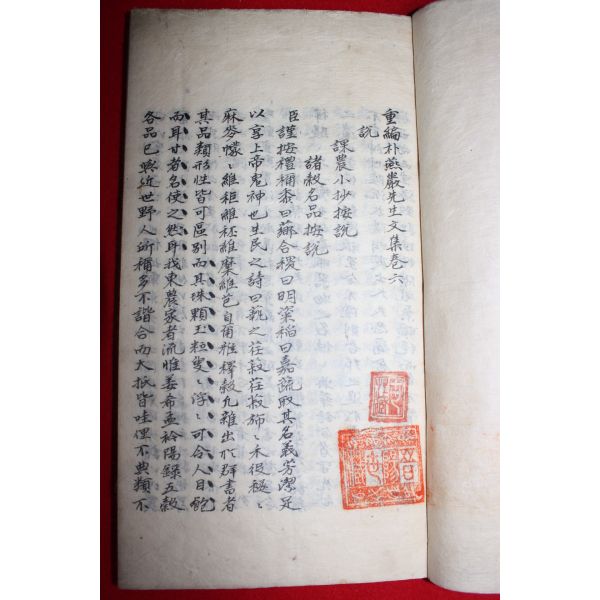 重編朴燕巖先生文集卷六
說
課農小抄按說
諸穀名品按說
臣謹按禮稱黍曰薌合稷曰明粢稻曰嘉疏取其名義芳潔足
以享上帝鬼神也生民之詩曰蓺之荏菽荏菽旆〻禾役穟〻
麻麥幪〻維秬維秠維穈維芑自爾雅釋穀凡雜出於群書者
其品類形性皆可區別而其珠顆玉粒叟〻浮〻可令人目飽
而耳甘者名使之然耳我東農家者流惟姜希孟衿陽錄五穀
各品已與近世野人所稱多不諧合而大抵皆哇俚不典類不